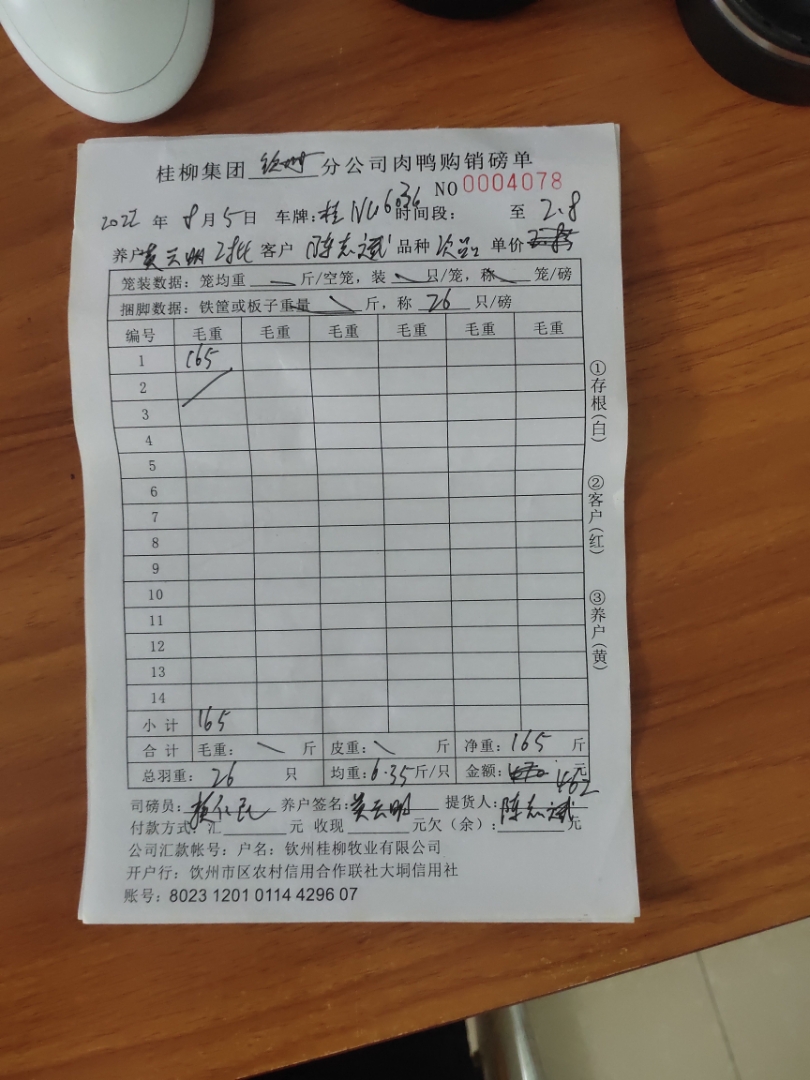 桂柳集团 钦州 分公司肉鸭购销磅单
NO 0004078
2022 年 8 月 5 日 车牌：桂 NU6036 时间段： 至 2.8
养户 黄云明 2批 客户 陈志斌 品种 次品 单价
笼装数据：笼均重 斤/空笼，装 只/笼，称 笼/磅
捆脚数据：铁筐或板子重量 斤，称 26 只/磅
编号 毛重 毛重 毛重 毛重 毛重 毛重
1 165
2
3
4
5
6
7
8
9
10
11
12
13
14
小计 165
合计 毛重： 斤 皮重： 斤 净重：165 斤
总羽重：26 只 均重：6.35斤/只 金额：462 元
司磅员： 养户签名：黄云明 提货人：陈志斌
付款方式：汇 元 收现 元欠（余）： 元
公司汇款帐号：户名：钦州桂柳牧业有限公司
开户行：饮州市区农村信用合作联社大垌信用社
账号：8023 1201 0114 4296 07
①存根（白）
②客户（红）
③养户（黄）